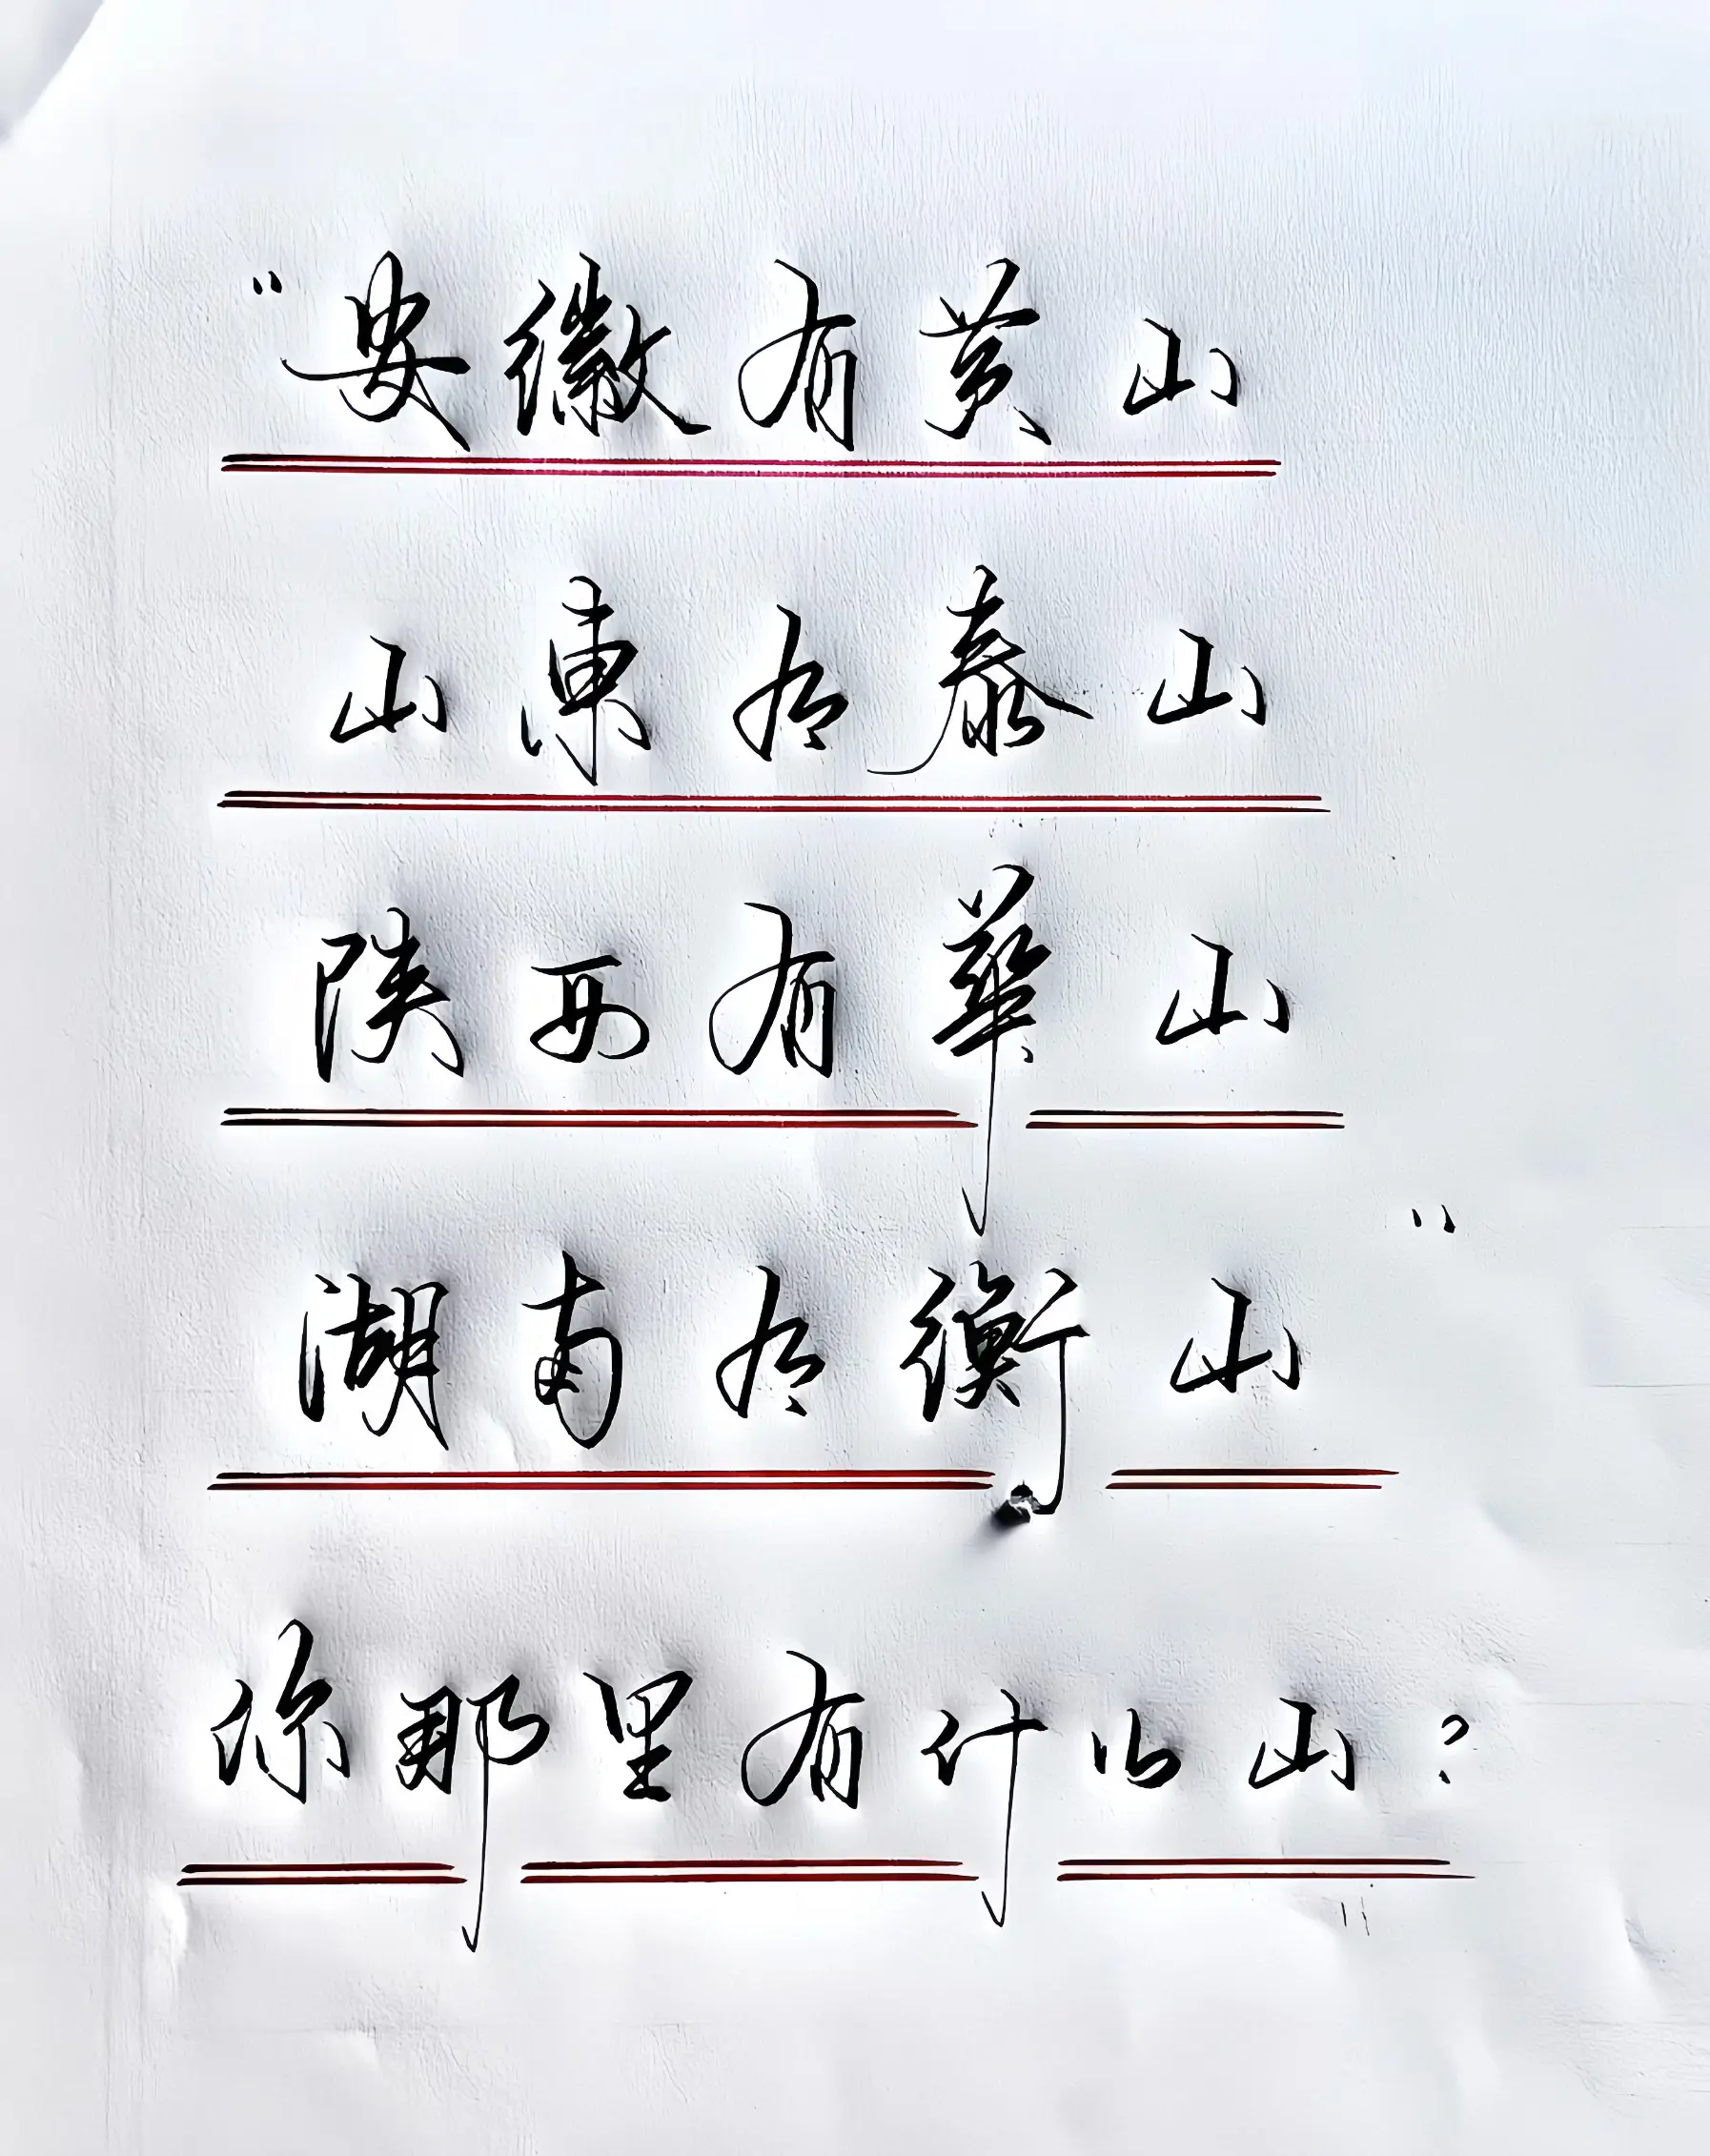 "安徽有黄山
山東有泰山
陕西有華山
湖南有衡山"
你那里有什么山?